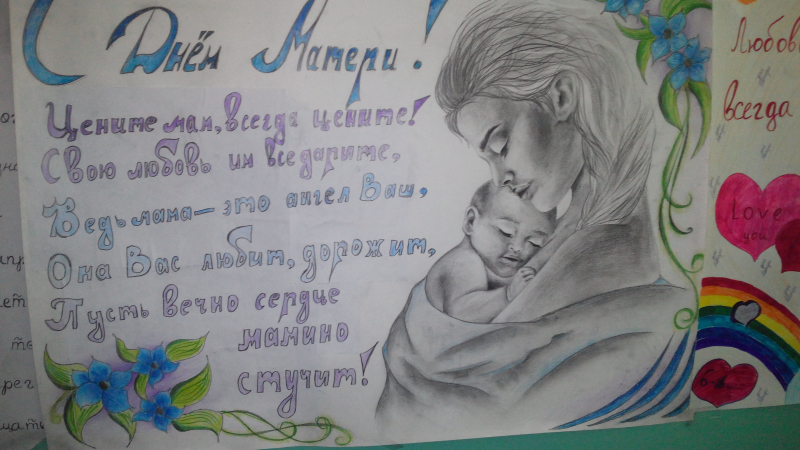 С Днём Матери!
Цените мам, всегда цените!
Свою любовь им все дарите,
Ведь мама — это ангел Ваш,
Она Вас любит, дорожит,
Пусть вечно сердце
мамино
стучит!
Любовь
всегда
Love
you